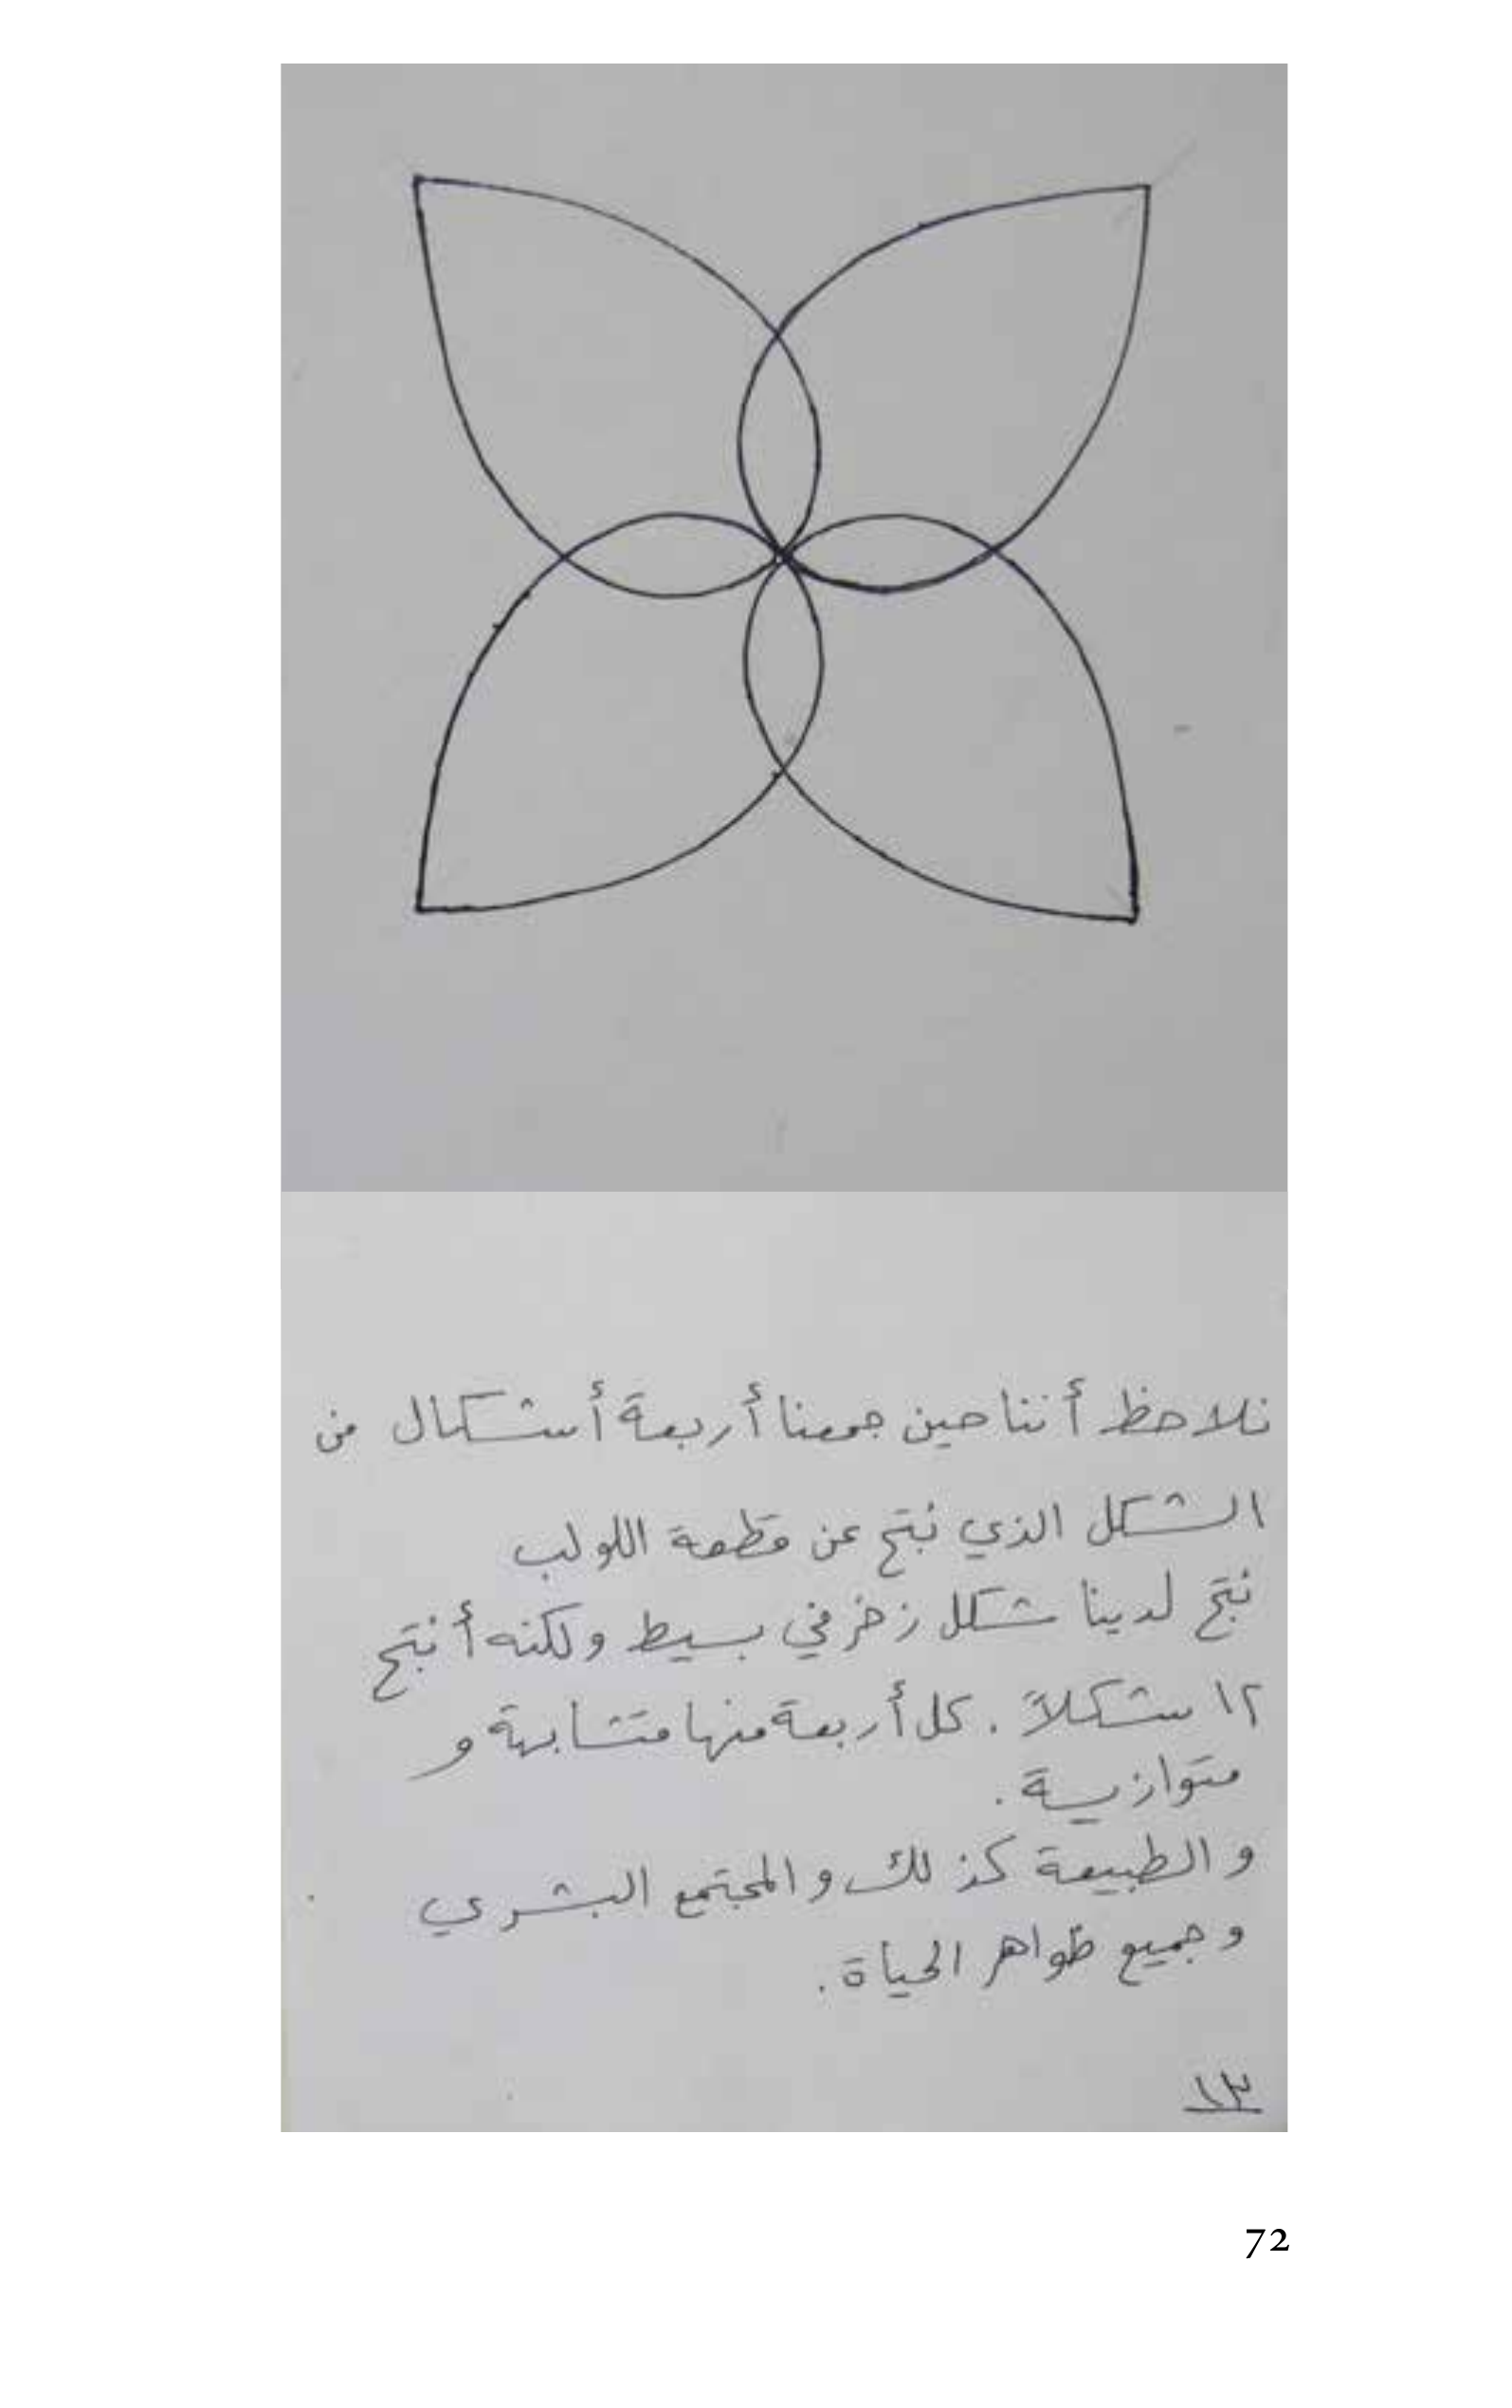 نلاحظ أننا حين جمعنا أربعة أشكال من
الشكل الذي نتج عن قطعة اللولب
نتج لدينا شكل زخرفي بسيط ولكنه أنتج
١٢ شكلاً . كل أربعة منها متشابهة و
متوازية .
و الطبيعة كذلك و المجتمع البشري
و جميع ظواهر الحياة .
١٣
72